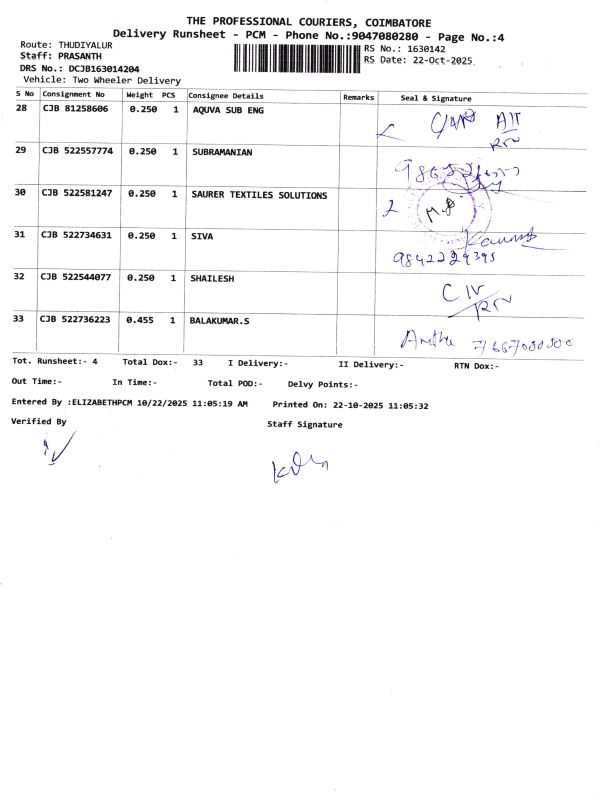 THE PROFESSIONAL COURIERS, COIMBATORE
Delivery Runsheet - PCM - Phone No.:9047080280 - Page No.:4
Route: THUDIYALUR RS No.: 1630142
Staff: PRASANTH RS Date: 22-Oct-2025
DRS No.: DCJB163014204
Vehicle: Two Wheeler Delivery
S No Consignment No Weight PCS Consignee Details Remarks Seal & Signature
28 CJB 81258606 0.250 1 AQUVA SUB ENG
29 CJB 522557774 0.250 1 SUBRAMANIAN
30 CJB 522581247 0.250 1 SAURER TEXTILES SOLUTIONS
31 CJB 522734631 0.250 1 SIVA
9842229395
32 CJB 522544077 0.250 1 SHAILESH
33 CJB 522736223 0.455 1 BALAKUMAR.S
Tot. Runsheet:- 4 Total Dox:- 33 I Delivery:- II Delivery:- RTN Dox:-
Out Time:- In Time:- Total POD:- Delvy Points:-
Entered By :ELIZABETHPCM 10/22/2025 11:05:19 AM Printed On: 22-10-2025 11:05:32
Verified By Staff Signature